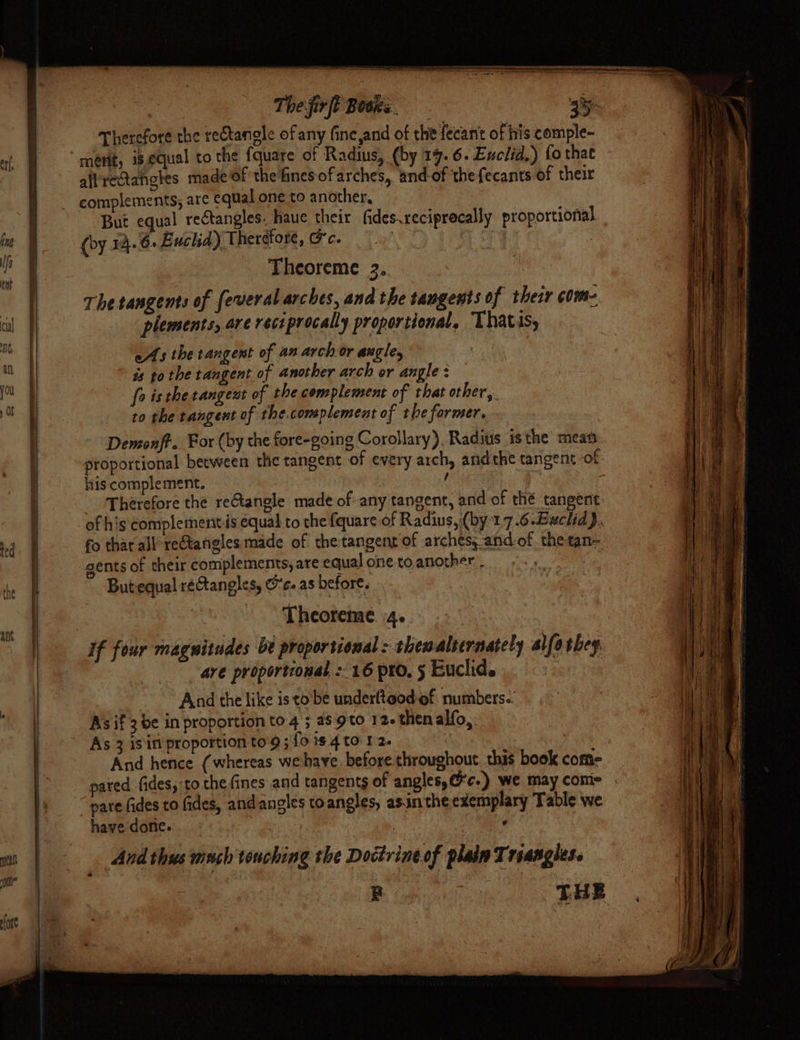 The first Booke. 35
Therefore the rectangle of any sine, and of the secant of his comple-
ment, is equal to the square of Radius, (by 17. 6. Euclid,) so that
all rectangles made of the sines of arches, and of the secants of their
complements, are equal one to another.
But equal rectangles haue their sides reciprocally proportional
(by 14. 6. Euclid) Therefore, &c.
Theoreme 3.
The tangents of severall arches, and the tangents of their com-
plements, are reciprocally proportional. That is,
As the tangent of an arch or angle,
is to the tangent of another arch or angle:
so is the tangent of the complement of that other,
to the tangent of the complement of the former.
Demonst. For (by the fore-going Corollary) Radius is the mean
proportional between the tangent of every arch, and the tangent of
his complement.
Therefore the rectangle made of any tangent, and of the tangent
of his complement is equal to the square of Radius, (by 17.6. Euclid).
so that all rectangles made of the tangent of arches, and of the tan-
gents of their complements, are equal one to another.
But equal rectangles, &c. as before.
Theoreme 4.
If four magnitudes be proportional: then alternately also they
are proportional: 16 pro. 5 Euclid.
And the like is to be understood of numbers.
As if 3 be in proportion to 4; as 9 to 12. then also,
As 3 is in proportion to 9; so is 4 to 12.
And hence (whereas we have before throughout this book com-
pared sides, to the sines and tangents of angles, &c.) we may com-
pare sides to sides, and angles to angles, as in the exemplary Table we
have done.
And thus much touching the Doctrine of plain Triangles.
THE